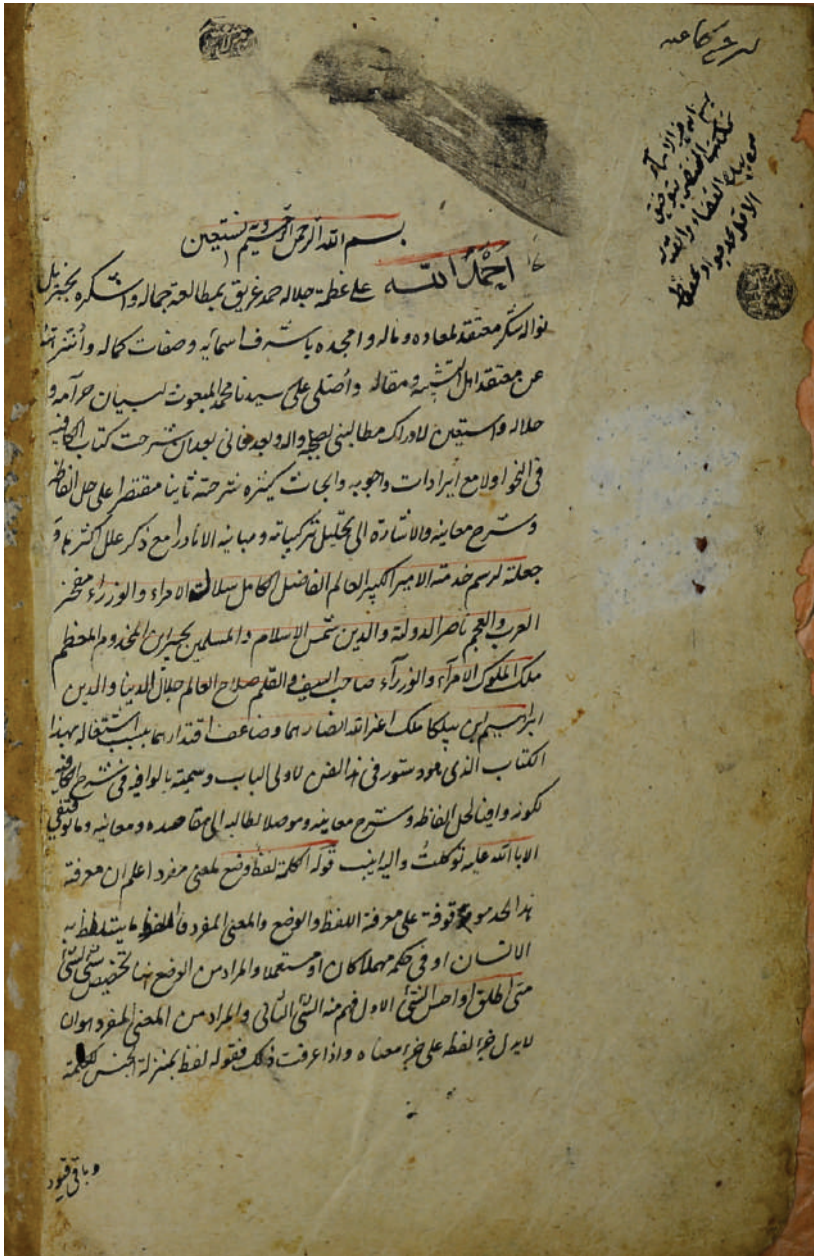 لرحی کافیه
بسم الله الرحمن الرحيم وبه نستعين
احمد الله على عظمة جلاله حمد غريق بمطالعة جماله واشكره بجزيل
نواله شكر معتقد لمعاده ومآله وامجده باشرف اسمائه وصفات كماله وانزهه
عن معتقد اهل التشبيه ومقاله واصلى على سيدنا محمد المبعوث لبيان حرامه و
حلاله واستعين لادراك مطالبى بصحبه واله وبعد فانى بعد ان شرحت كتاب الكافيه
فى النحو اولا مع ايرادات واجوبه وابحاث كثيره شرحته ثانيا مقتصرا على حل الفاظه
وشرح معانيه والاشارة الى تحليل تركيباته ومبانيه الا نادرا مع ذكر علل اكثرها و
جعلته لرسم خدمته الامير الكبير العالم الفاضل الكامل سلالة الامراء والوزراء مفخر
العرب والعجم ناصر الدولة والدين شمس الاسلام والمسلمين يحيى ابن المخدوم المعظم
ملك الملوك الامرآء والوزرآء صاحب السيف والقلم صلاح العالم جلال الدنيا والدين
ابراهيم ابن ملك اعز الله انصارهما وضاعف اقتدارهما بسبب اشتغاله بهذا
الكتاب الذى هو دستور فى هذا الفن لاولى الباب وسميته بالوافيه فى شرح الكافيه
لكونه وافيا لحل الفاظه وشرح معانيه وموصلا لطالبه الى مقاصده ومعانيه وما توفيقى
الا بالله عليه توكلت واليه انيب قوله الكلمة لفظ وضع لمعنى مفرد اعلم ان معرفة
هذا الحد موقوفة على معرفة اللفظ والوضع والمعنى المفرد فاللفظ ما يتلفظ به
الانسان او فى حكمه مهملا كان او مستعملا والمراد من الوضع ههنا تخصيص شئ بشئ
متى اطلق او احس الشئ الاول فهم منه الشئ الثانى والمراد من المعنى المفرد هو ان
لا يدل جزء لفظه على جزء معناه واذا عرفت ذلك فقوله لفظ بمنزلة الجنس للكلمة
وباقى قيود